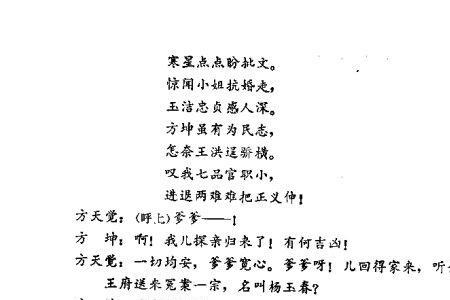 寒星点点盼批文。
惊闻小姐抗婚走，
玉洁忠贞感人深。
方坤虽有为民志，
怎奈王洪逞骄横。
叹我七品官职小，
进退两难难把正义伸！
方天觉：（呼上）爹爹——！
方　坤：啊！我儿探亲归来了！有何吉凶？
方天觉：一切均安，爹爹宽心。爹爹呀！儿回得家来，听
王府送来冤案一宗，名叫杨玉春？